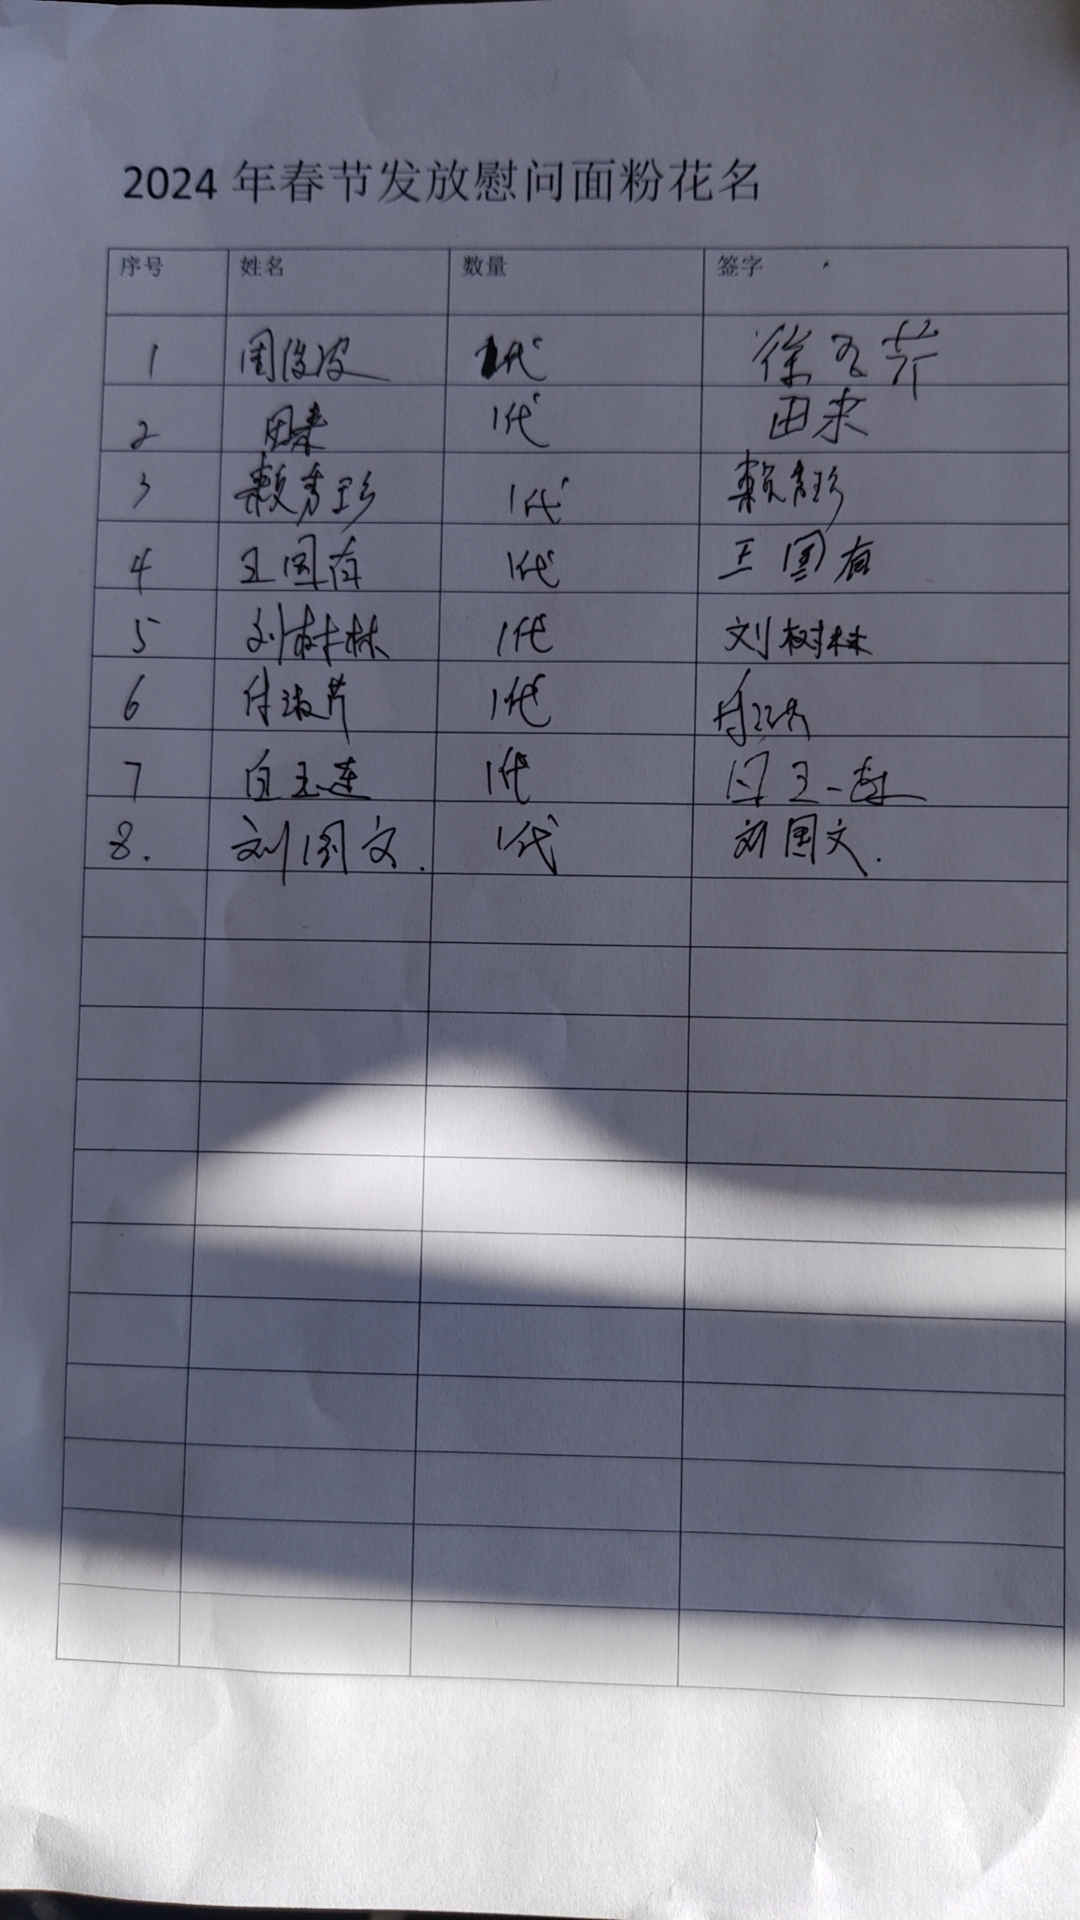 2024 年春节发放慰问面粉花名
序号 姓名 数量 签字
1 周俊波 1代 徐 芹
2 田来 1代 田来
3 赖秀珍 1代 赖秀珍
4 王国有 1代 王国有
5 刘树林 1代 刘树林
6 付淑芹 1代
7 白玉莲 1代
8. 刘国文. 1代 刘国文.